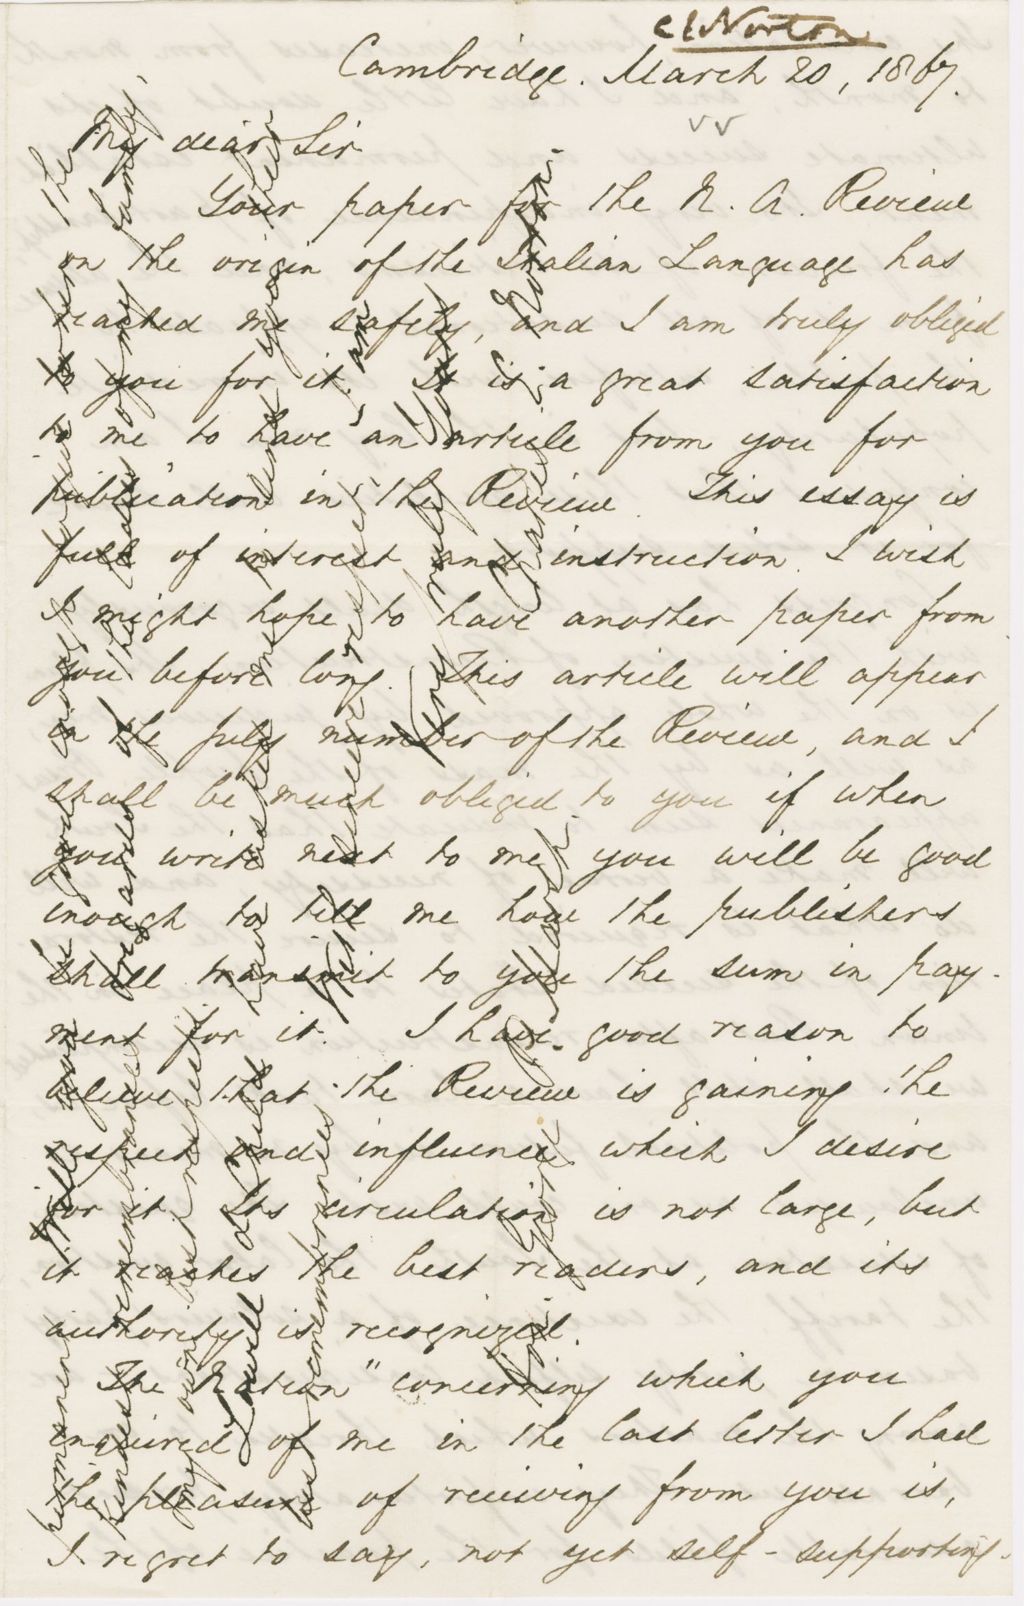 C E Norton
Cambridge. March 20, 1867.
My dear Sir
Your paper for the N. A. Review
on the origin of the Italian Language has
reached me safely, and I am truly obliged
to you for it. It is a great satisfaction
to me to have an article from you for
publication in the Review. This essay is
full of interest and instruction. I wish
I might hope to have another paper from
you before long. This article will appear
in the July number of the Review, and I
shall be much obliged to you if when
you write next to me, you will be good
enough to tell me how the publishers
shall transmit to you the sum in pay-
ment for it. I have good reason to
believe that the Review is gaining the
respect and influence which I desire
for it. Its circulation is not large, but
it reaches the best readers, and its
authority is recognized.
The "Nation" concerning which you
inquired of me in the last letter I had
the pleasure of receiving from you is,
I regret to say, not yet self-supporting.
permanent
kindest remembrances of my family,
my own best respects
I will
best remembrances
With sincere respect, I am
Very truly Yours
Charles E. Norton.
Hon. George P. Marsh.